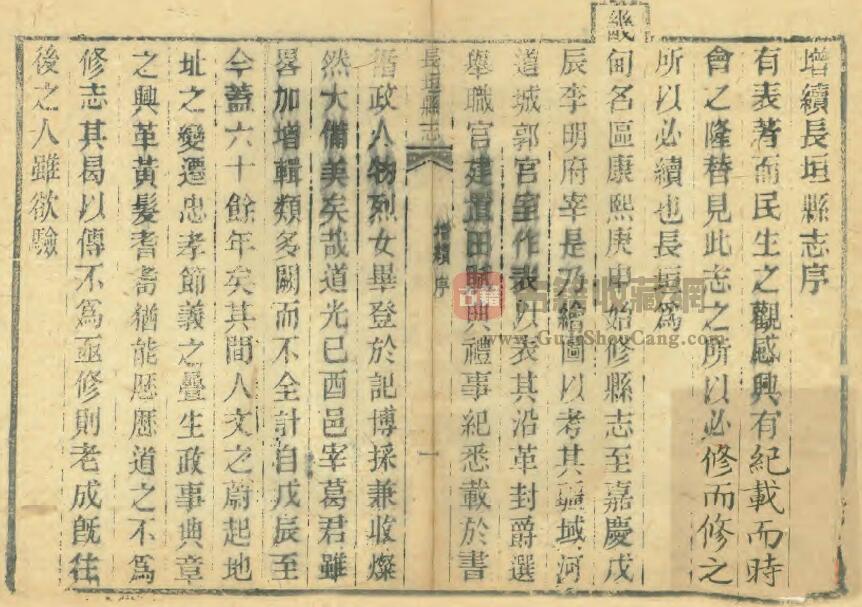 增續長垣縣志序
有表著而民生之觀感興有紀載而時
會之隆替見此志之所以必修而修之
所以必續也長垣爲
畿甸名區康熙庚申始修縣志至嘉慶戊
辰李明府宰是乃繪圖以考其疆域河
道城郭宮室作表以表其沿革封爵選
舉職官建置田賦典禮事紀悉載於書
長垣縣志 增續 序 一
循政人物烈女畢登於記博採兼收燦
然大備美矣哉道光己酉邑宰葛君雖
畧加增輯類多闕而不全計自戊辰至
今蓋六十餘年矣其間人文之蔚起地
址之變遷忠孝節義之疊生政事典章
之興革黃髮耆耇猶能歷歷道之不爲
修志其曷以傳不爲亟修則老成旣往
後之人雖欲驗
古籍
古籍收藏網
www.GujiShouCang.com